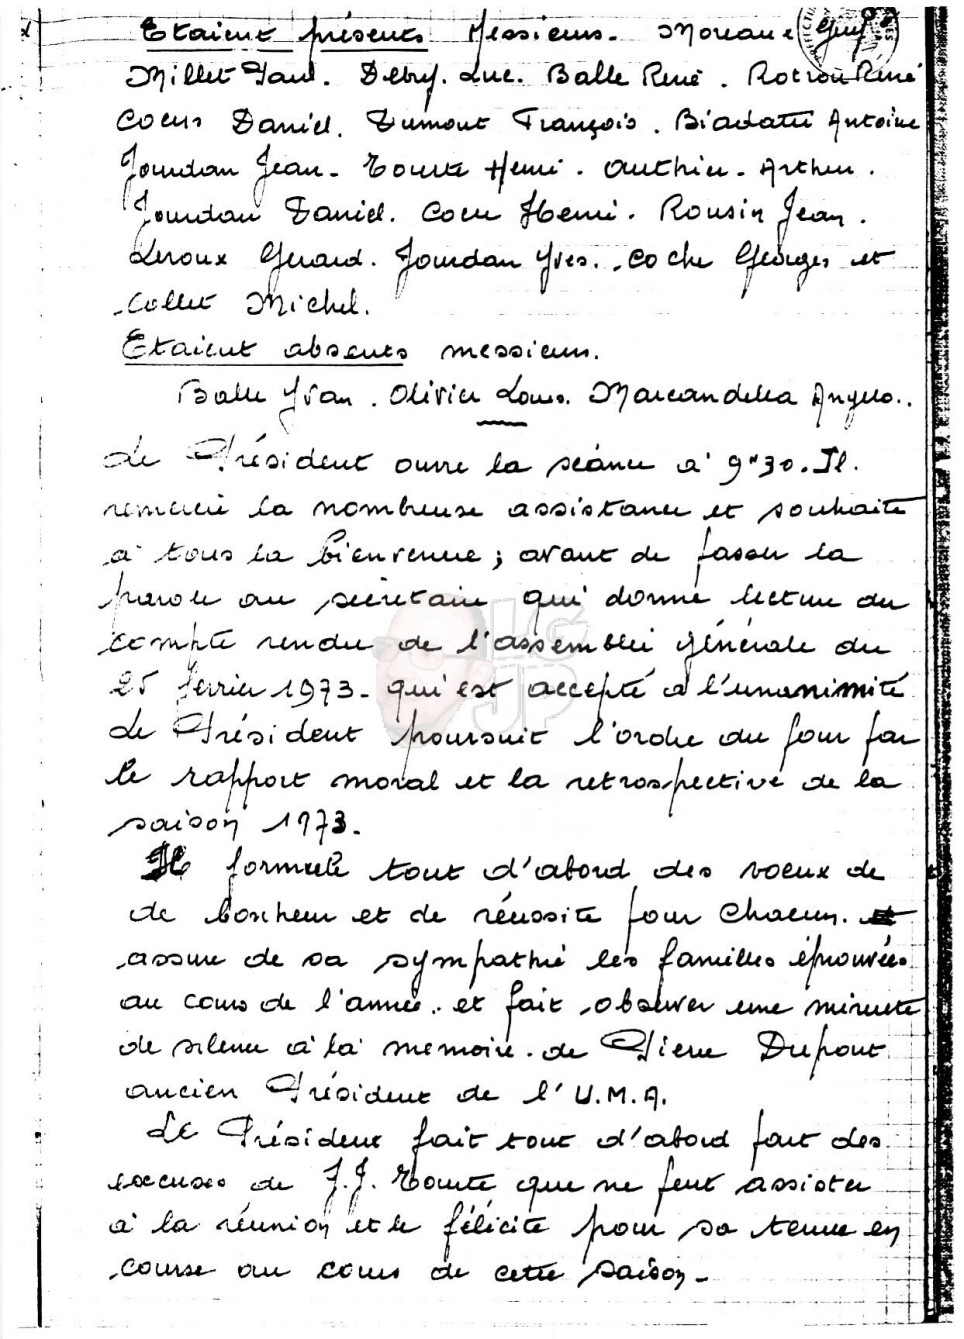 Etaient présents Messieurs. Moreau Guy
Millet Paul. Debry. Luc. Balle René. Rotrou René
Coeur Daniel. Dumont François. Biadatti Antoine
Jourdan Jean. Tourte Henri. Authier. Arthur.
Jourdan Daniel. Coeur Henri. Rousin Jean.
Leroux Gérard. Jourdan Yves. Coche Georges et
Collet Michel.
Etaient absents messieurs.
Balle Yvan. Olivier Louis. Marcandella Angelo..
Le Président ouvre la séance a' 9"30. Il.
remercie la nombreuse assistance et souhaite
a' tous la bienvenue; avant de passer la
parole au secretaire qui donne lecture du
compte rendu de l'assemblée générale du
25 février 1973. qui est accepté a l'unanimité
Le Président poursuit l'ordre du jour par
le rapport moral et la retrospective de la
saison 1973.
Il formule tout d'abord des voeux de
de bonheur et de réussite pour chacun.
assure de sa sympathie les familles éprouvées
au cours de l'année. et fait observer une minute
de silence a' la memoire. de Pierre Dupont
ancien Président de l'U.M.A.
Le Président fait tout d'abord part des
excuses de J.J. Tourte que ne peut assister
a' la réunion et le félicite pour sa tenue en
course au cours de cette saison.
LG
JP